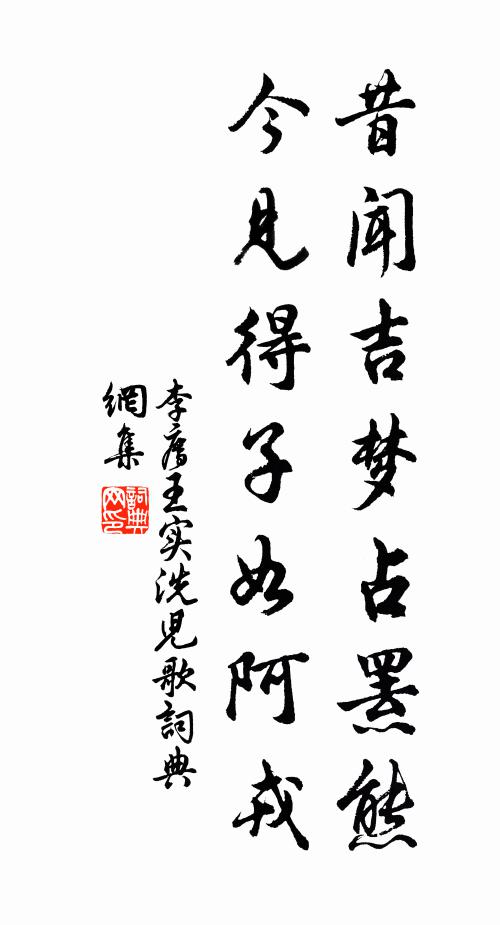 昔闻吉梦占罴熊
今见得子如阿戎
李廌王实洗児歌詞典
網集
詞典
网印